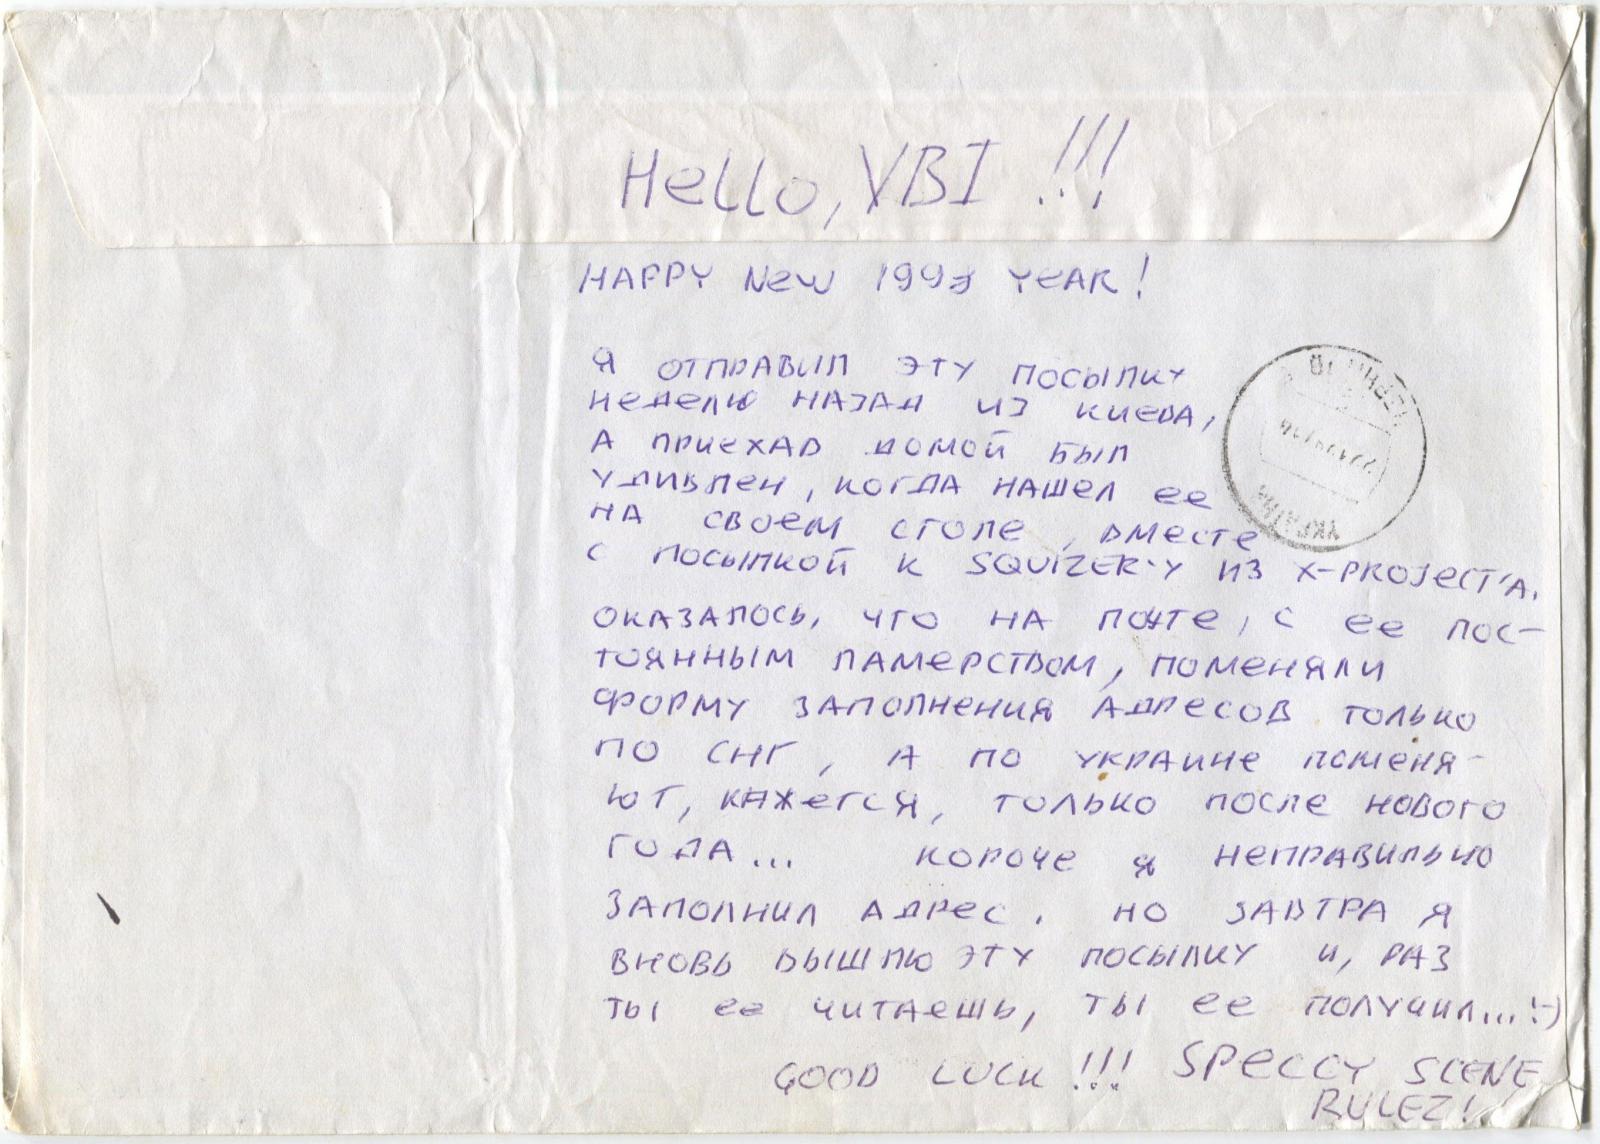 Hello, VBI !!!
HAPPY New 1998 YeAR!
Я ОТПРАВИЛ ЭТУ ПОСЫЛКУ
НЕДЕЛЮ НАЗАД ИЗ КИЕВА,
А ПРИЕХАВ ДОМОЙ БЫЛ
УДИВЛЕН, КОГДА НАШЕЛ ЕЕ
НА СВОЕМ СТОЛЕ, ВМЕСТЕ
С ПОСЫЛКОЙ К SQUIZER'У ИЗ X-PROJECT'А.
ОКАЗАЛОСЬ, ЧТО НА ПОЧТЕ, С ЕЕ ПОС-
ТОЯННЫМ ЛАМЕРСТВОМ, ПОМЕНЯЛИ
ФОРМУ ЗАПОЛНЕНИЯ АДРЕСОВ ТОЛЬКО
ПО СНГ, А ПО УКРАИНЕ ПОМЕНЯ-
ЮТ, КАЖЕТСЯ, ТОЛЬКО ПОСЛЕ НОВОГО
ГОДА... КОРОЧЕ Я НЕПРАВИЛЬНО
ЗАПОЛНИЛ АДРЕС. НО ЗАВТРА Я
ВНОВЬ ВЫШЛЮ ЭТУ ПОСЫЛКУ И, РАЗ
ТЫ ЕЕ ЧИТАЕШЬ, ТЫ ЕЕ ПОЛУЧИЛ... :-)
GOOD LUCK !!! SPECCY SCENE
RULEZ!
УКРАЇНА